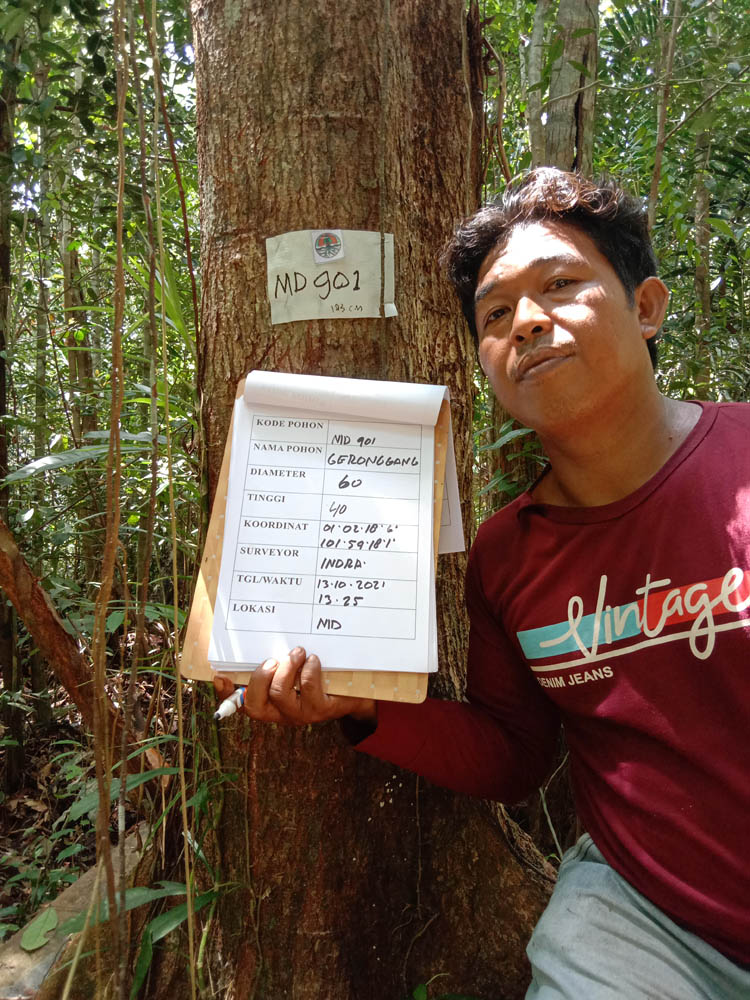 MD 901
123 CM
KODE POHON MD 901
NAMA POHON GERONGGANG
DIAMETER 60
TINGGI 40
KOORDINAT 01·02·18'6'
101·59·18'1"
SURVEYOR INDRA
TGL/WAKTU 13·10·2021
13·25
LOKASI MD
Vintage
DENIM JEANS